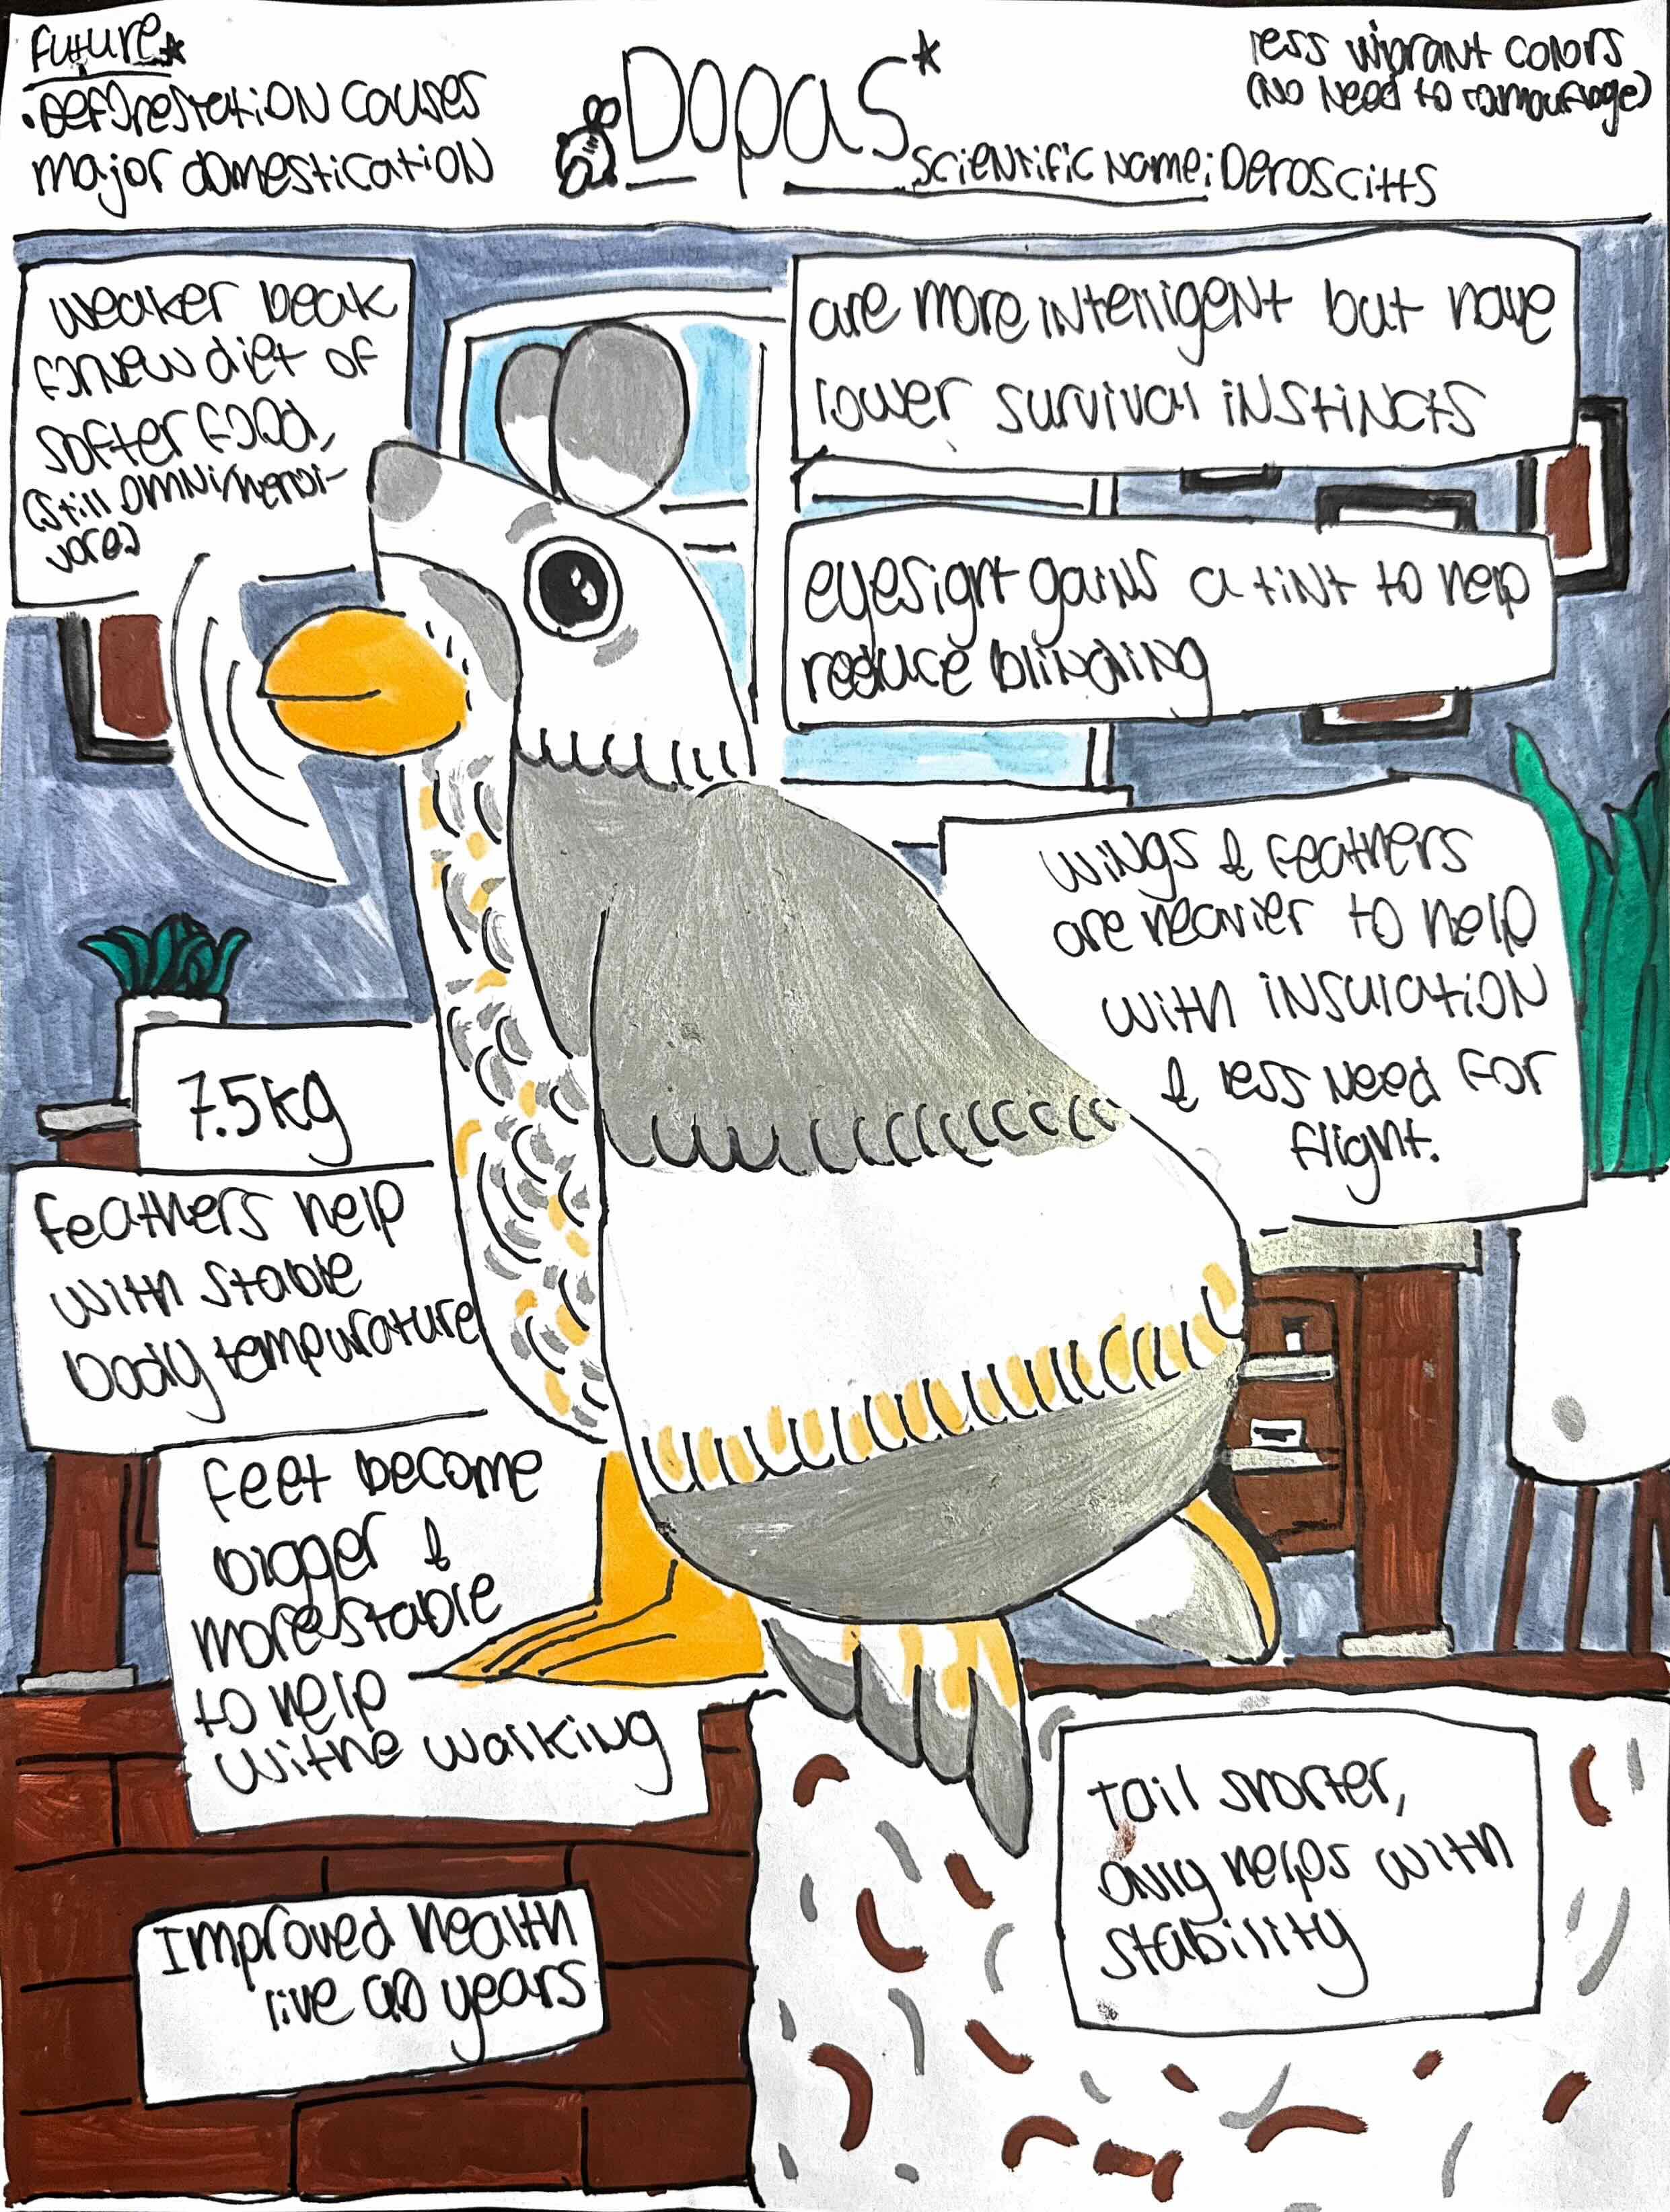 Future*
• Deforestation causes
major domestication
Dopas*
Scientific Name: Deroscitts
less vibrant colors
(No Need to camouflage)
weaker beak
for new diet of
softer food,
(Still omni/herbi-
vore)
are more intelligent but have
lower survival instincts
eyesight gains a tint to help
reduce blinding
wings & feathers
are heavier to help
with insulation
& less need for
flight.
7.5kg
feathers help
with stable
body tempurature
feet become
bigger &
more stable
to help
withe walking
tail shorter,
only helps with
stability
Improved health
live years